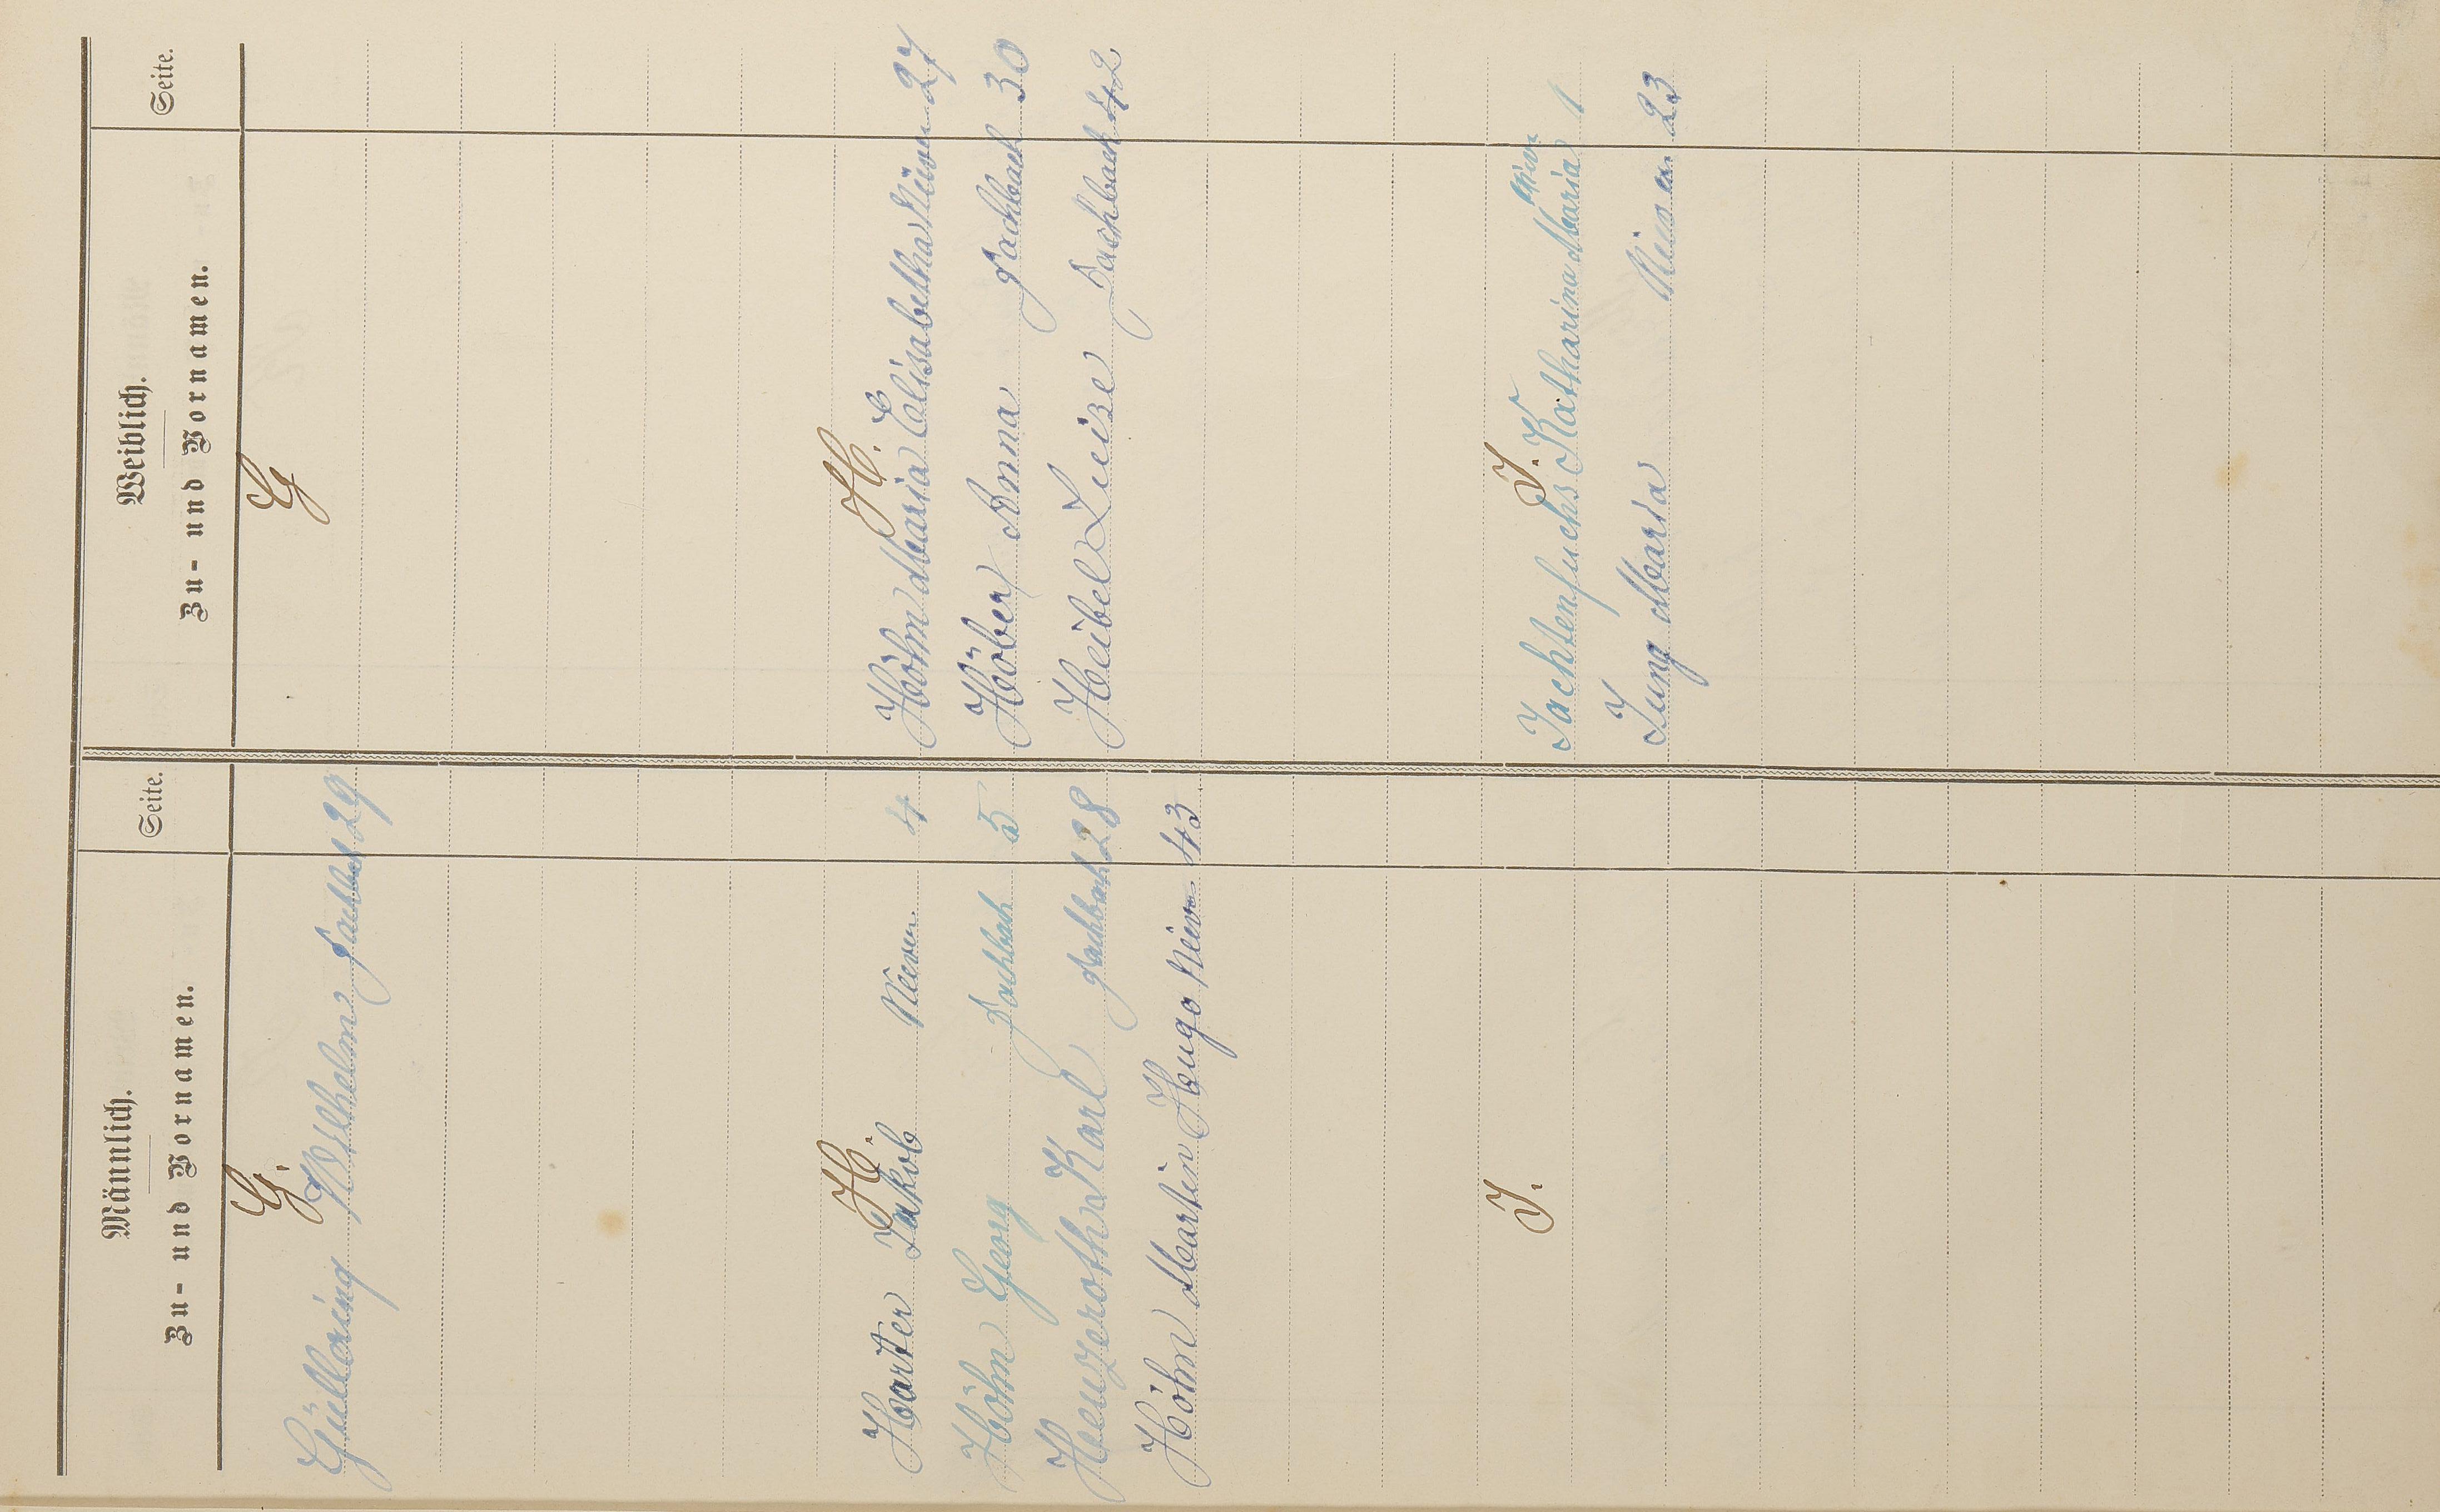 Männlich.
Zu- und Vornamen. Seite.
G.
Gülloring Wilhelm Fachbach 29
H.
Harter Jakob Nievern 4
Höhm Georg Fachbach 5
Heuzeroth Karl Fachbach 28
Höhm Martin Hugo Nievern 43
J.
Weiblich.
Zu- und Vornamen. Seite.
G
H.
Höhm Maria Elisabetha Nievern 27
Höber Anna Fachbach 30
Heibel Luise Fachbach 42
J.
Jachtenfuchs Katharina Maria Nievern 1
Jung Maria Nievern 23